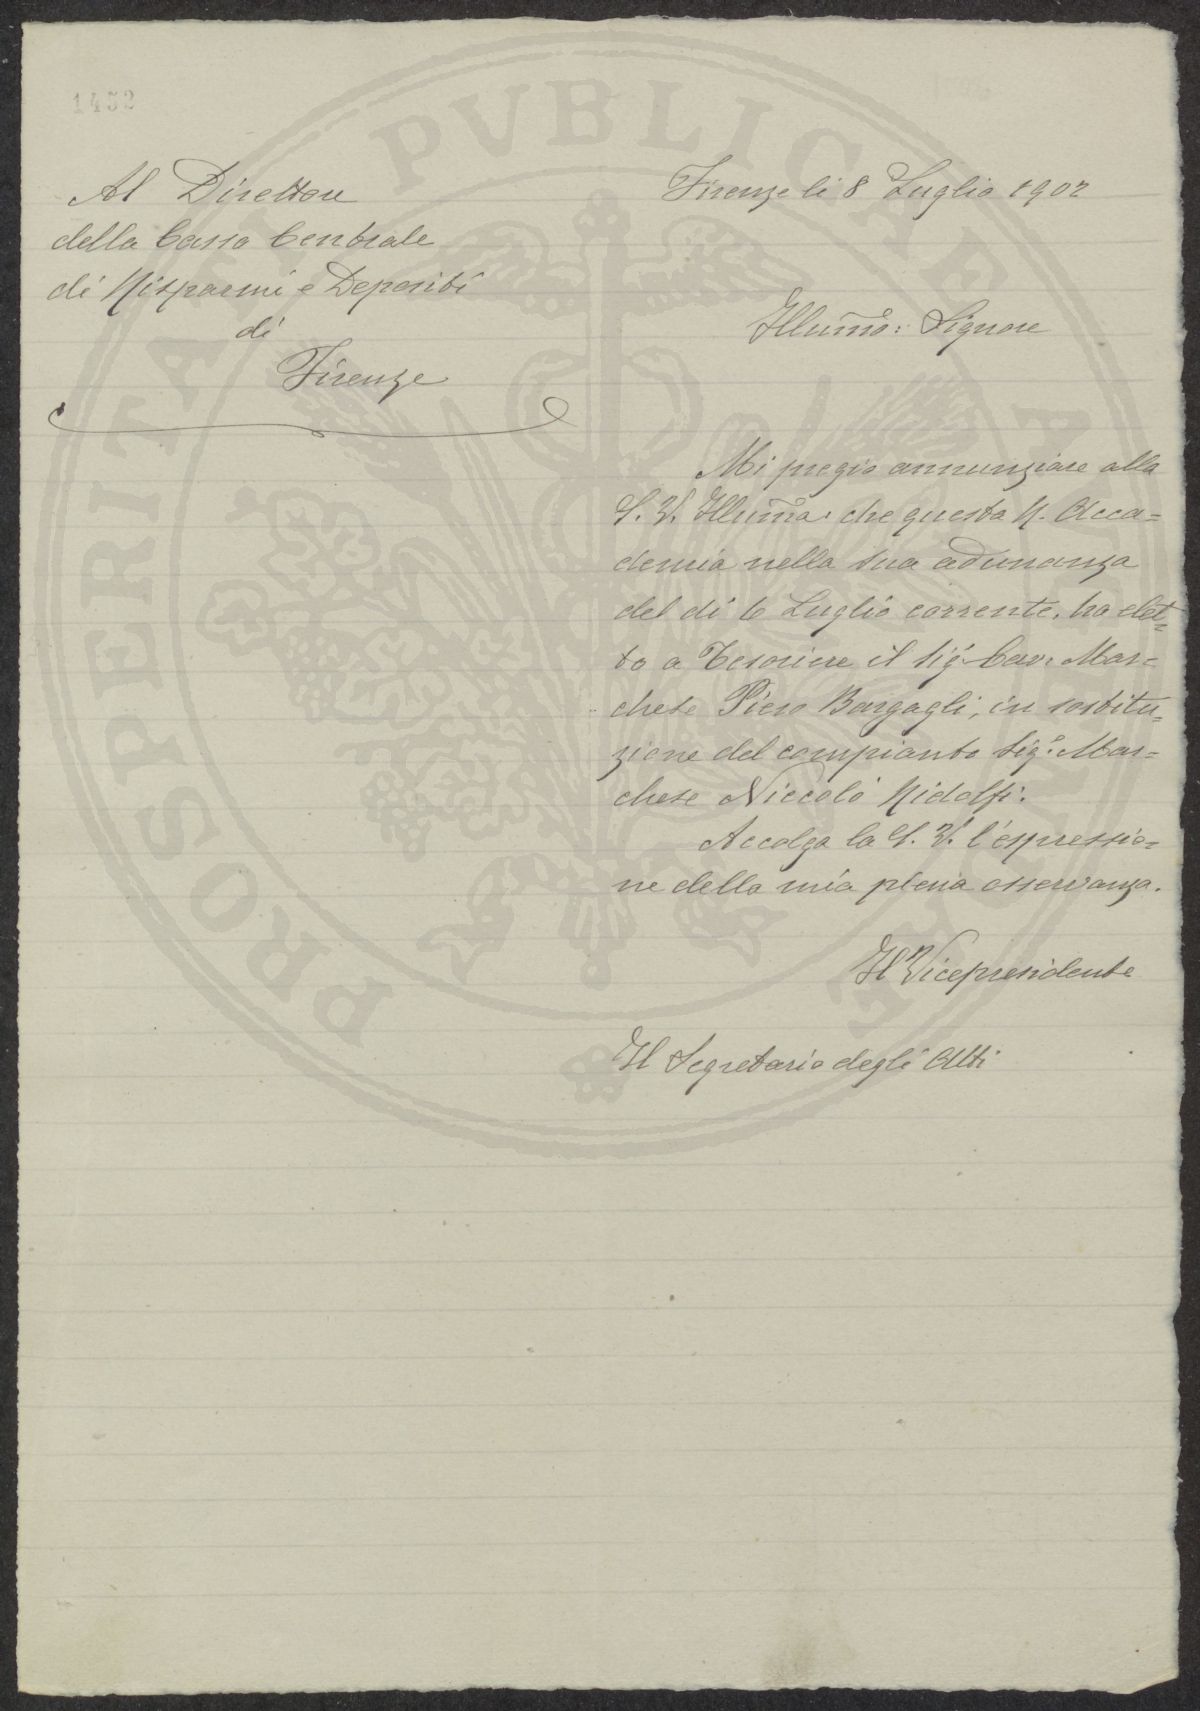 1452
Al Direttore
della Cassa Centrale
di Risparmi e Depositi
di
Firenze
Firenze li 8 Luglio 1902
Illum̃o: Signore
Mi pregio annunziare alla
S. V. Illum̃a: che questa R. Acca=
demia nella sua adunanza
del dì 6 Luglio corrente, ha elet=
to a Tesoriere il Sig: Cav: Mar=
chese Piero Bargagli, in sostitu=
zione del compianto Sig: Mar=
chese Niccolò Ridolfi.
Accolga la S. V. l'espressio=
ne della mia piena osservanza.
Il Vicepresidente
Il Segretario degli Atti
PROSPERITATI PVBLICAE AVGENDAE